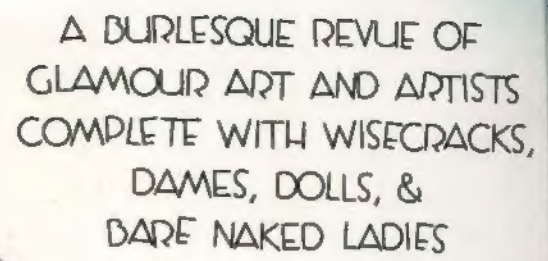 A BURLESQUE REVUE OF
GLAMOUR ART AND ARTISTS
COMPLETE WITH WISECRACKS,
DAMES, DOLLS, &
BARE NAKED LADIES